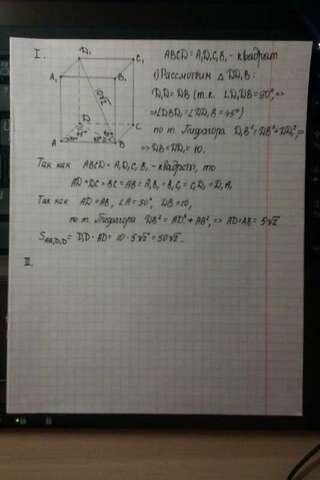 I.
D₁
C₁
A₁
B₁
10√2
D
C
A
B
45°
ABCD = A₁D₁C₁B₁ - квадрат
1) Рассмотрим △ DD₁B:
D₁D = DB (т.к. ∠D₁DB = 90°, =>
=> ∠DBD₁ = ∠DD₁B = 45°)
по т. Пифагора D₁B² = DB² + DD₁², =>
=> DB = DD₁ = 10.
Так как ABCD = A₁D₁C₁B₁ - квадрат, то
AD = DC = BC = AB = A₁B₁ = B₁C₁ = C₁D₁ = D₁A₁
Так как AD = AB, ∠A = 90°, DB = 10,
по т. Пифагора DB² = AD² + AB², => AD = AB = 5√2
S_AA₁D₁D = D₁D · AD = 10 · 5√2 = 50√2.
II.